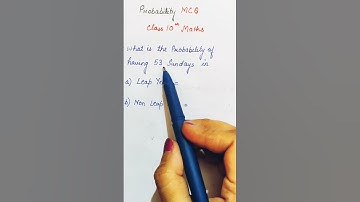 Probability MCQ
Class 10th Maths
What is the Probability of
having 53 Sundays in
a) Leap Ye =
b) Non Leap =